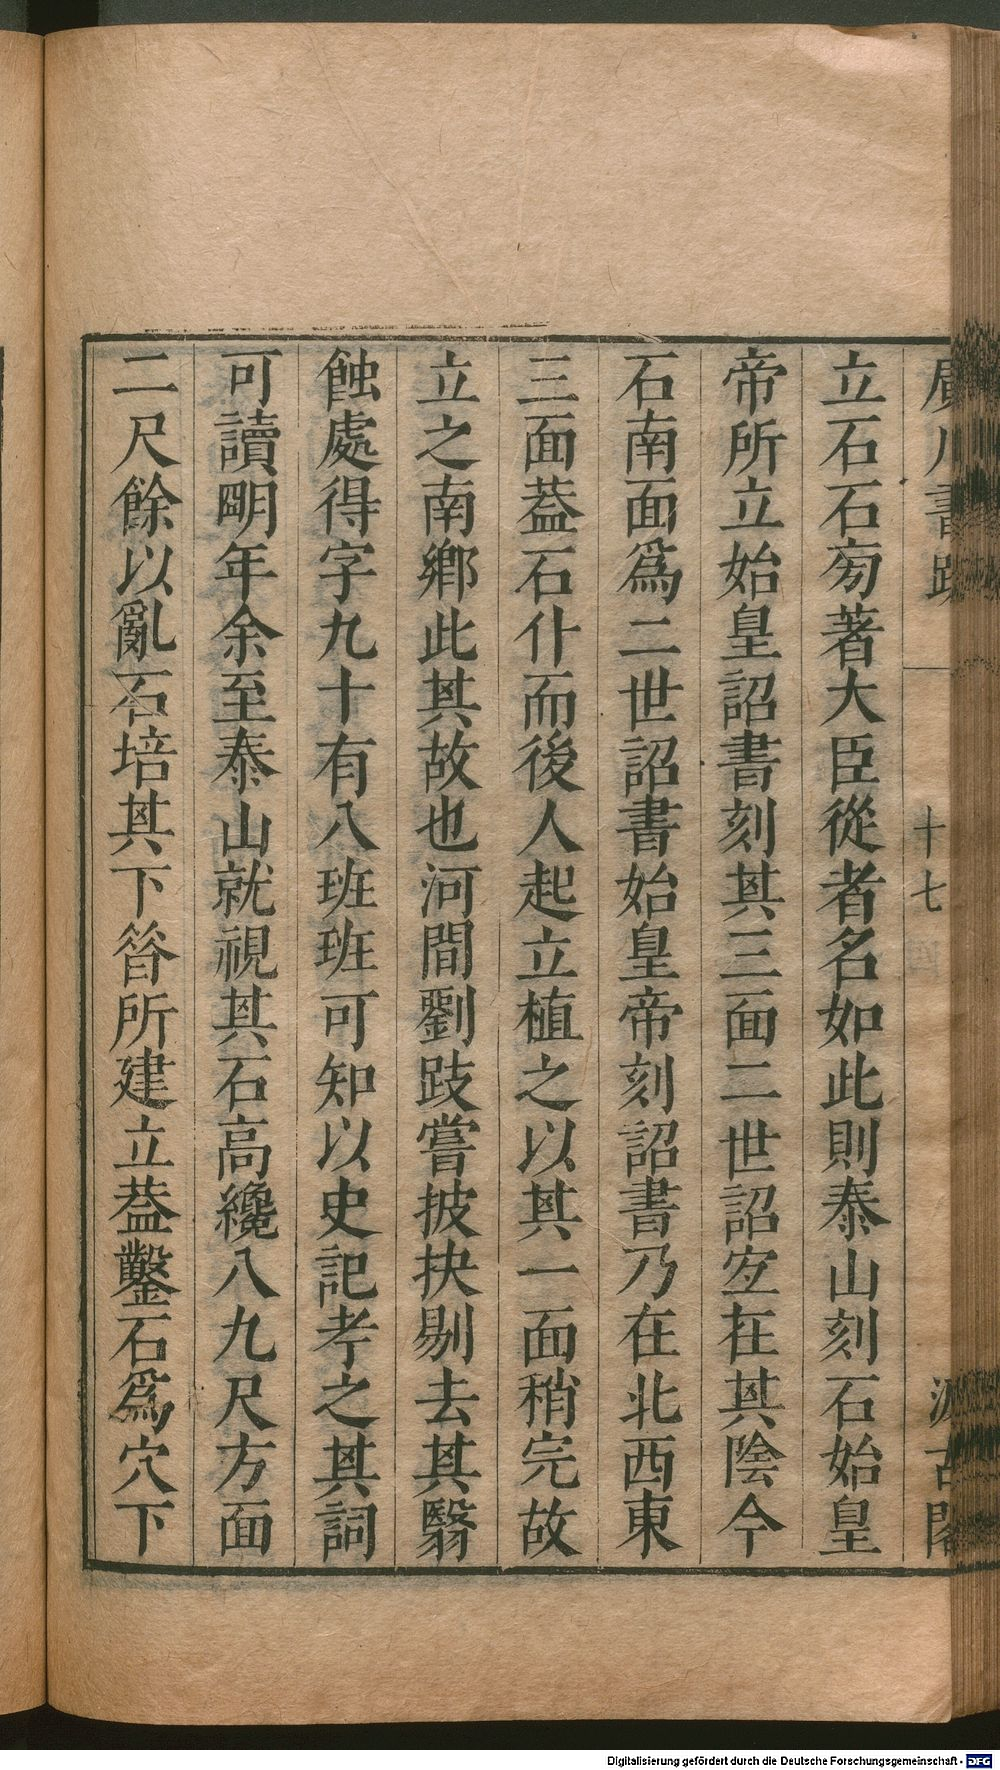 廣川書跋 十七 汲古閣
立石石㫄著大臣從者名如此則泰山刻石始皇
帝所立始皇詔書刻其三面二世詔宜在其陰今
石南面爲二世詔書始皇帝刻詔書乃在北西東
三面葢石仆而後人起立植之以其一面稍完故
立之南鄉此其故也河間劉跂嘗披抉剔去其翳
蝕處得字九十有八班班可知以史記考之其詞
可讀明年余至泰山就視其石高纔八九尺方面
二尺餘以亂石培其下㫺所建立葢鑿石爲穴下
Digitalisierung gefördert durch die Deutsche Forschungsgemeinschaft - DFG